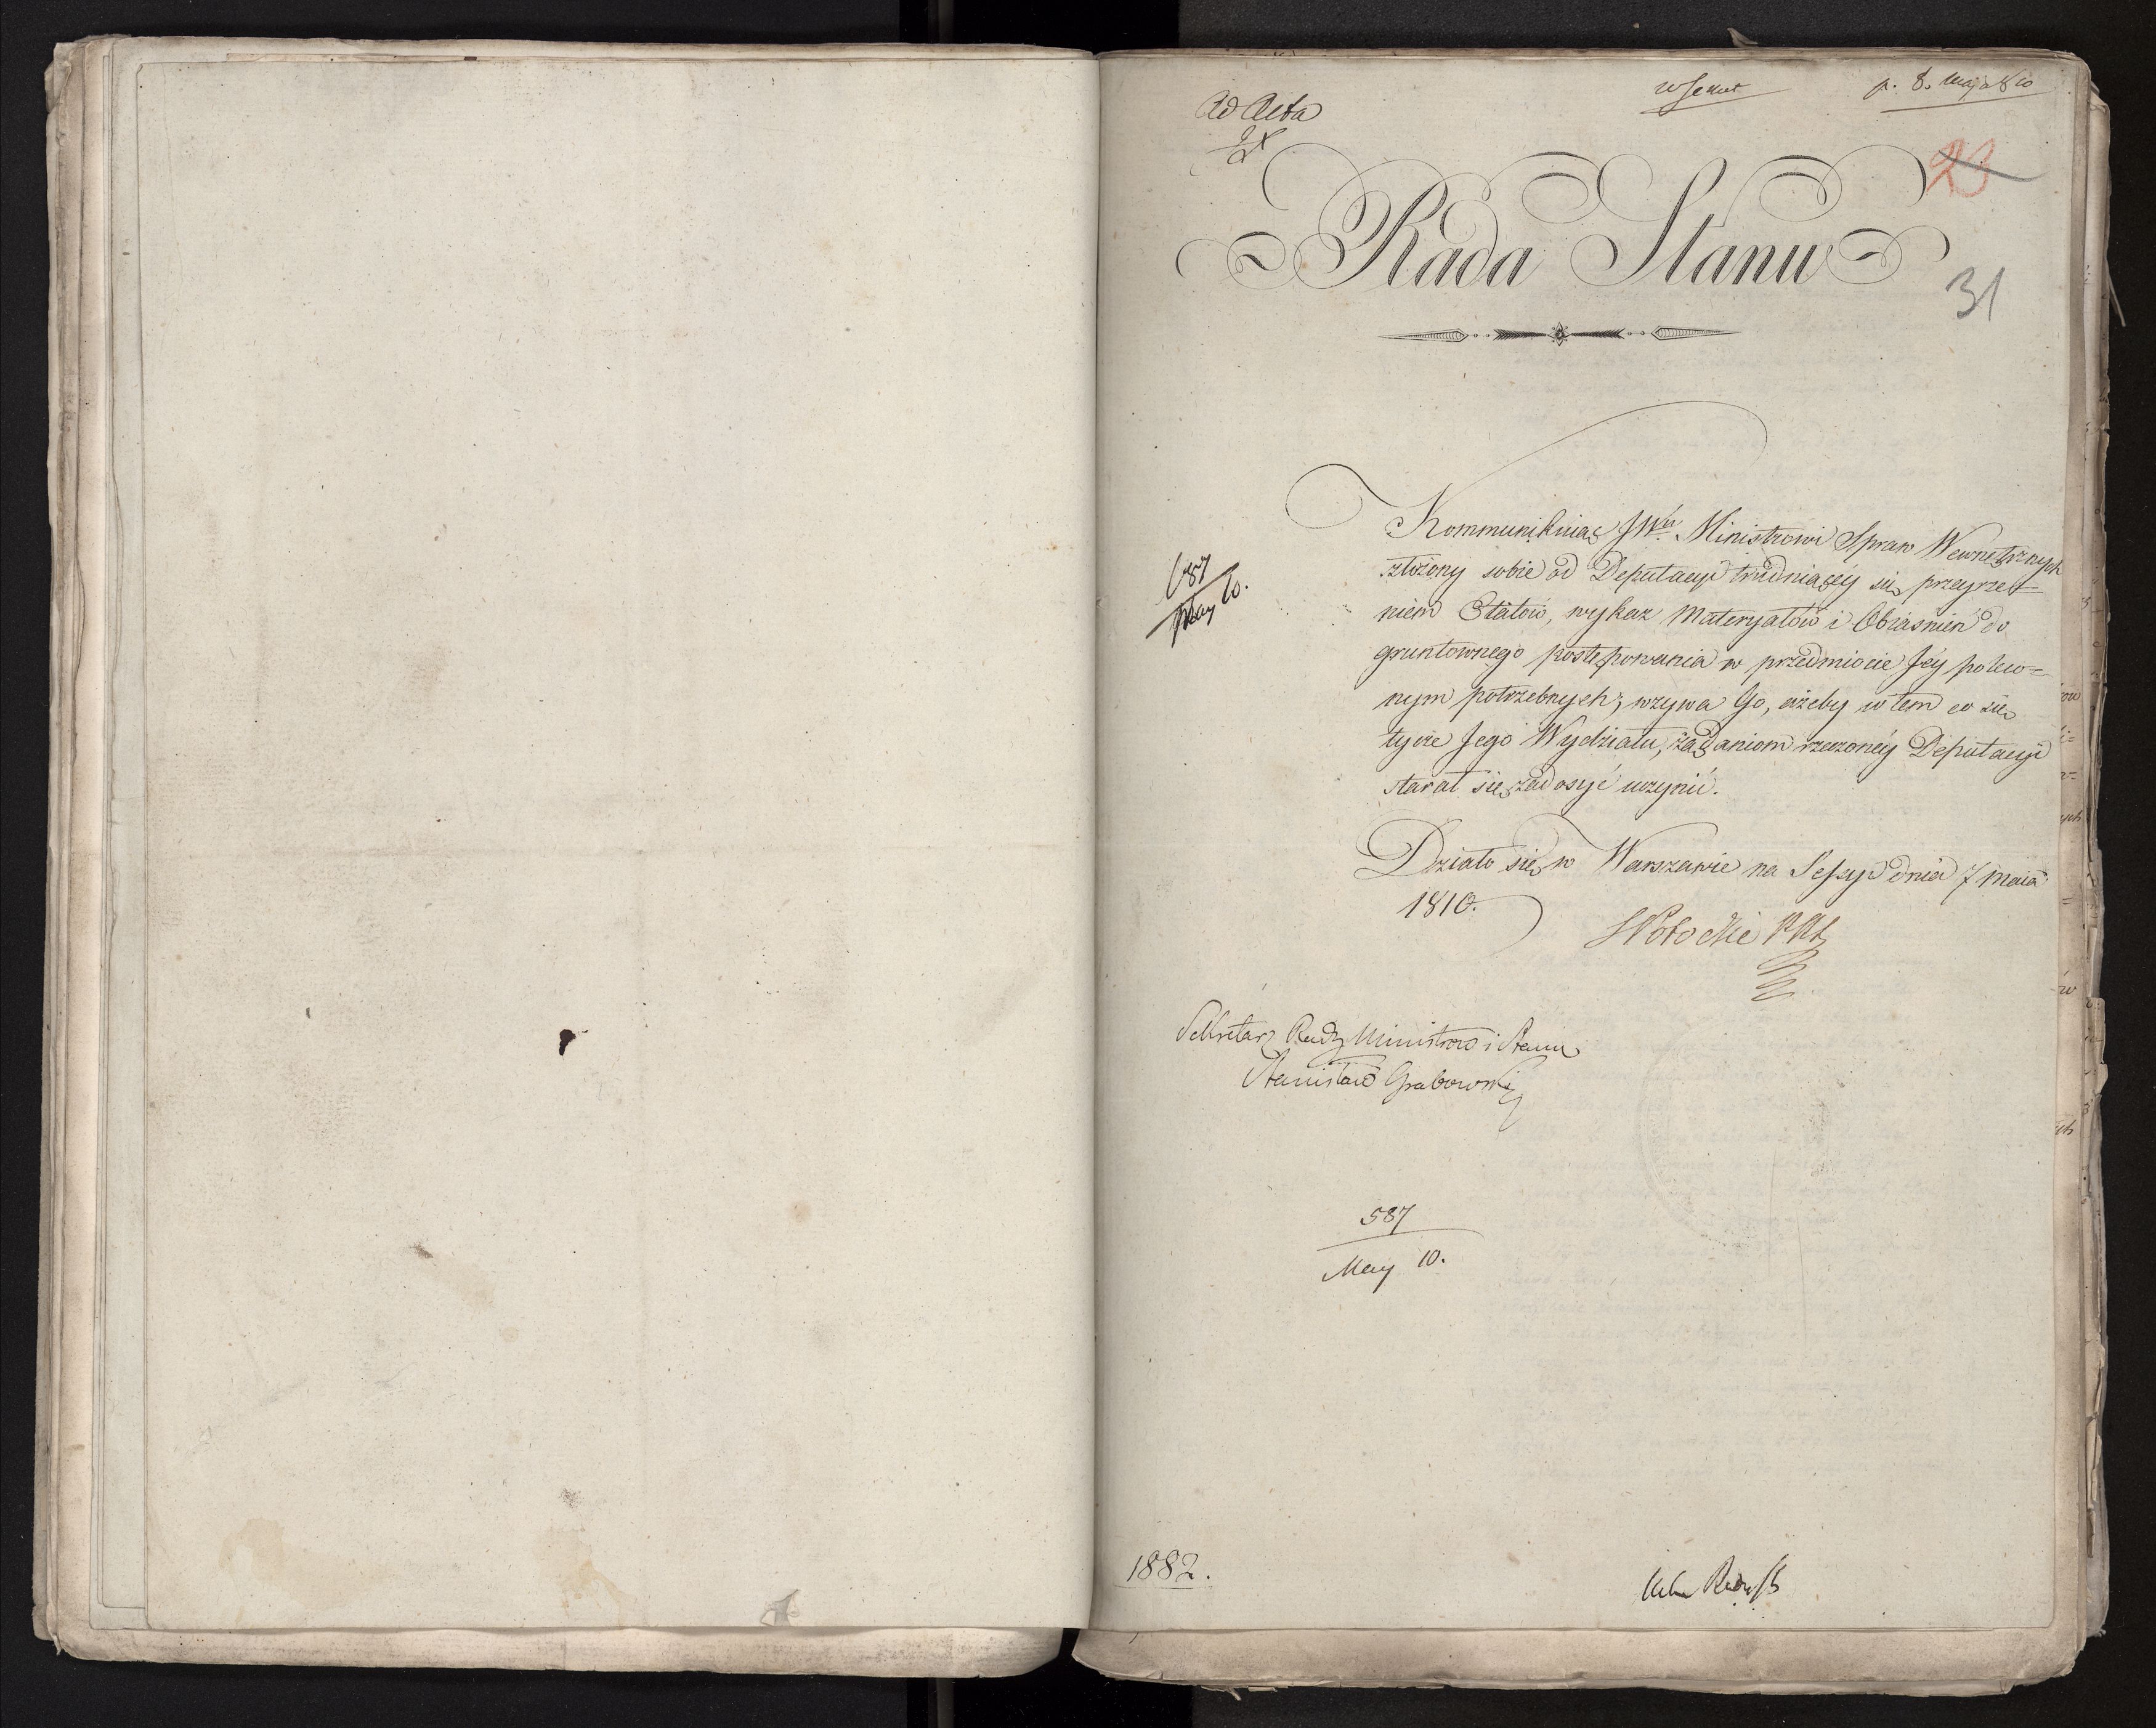 Ad Acta
p. 8. Maja 810
23
Rada Stanu
31
Kommunikuiąc JW. Ministrowi Spraw Wewnętrznych
złożony sobie od Deputacyi trudniącéy się przeyrze=
niem Etatów, wykaz Materyałów i Obiasnień do
gruntownego postępowania w przedmiocie Jéy polew=
nym potrzebnych; wzywa Go, ażeby w tem co się
tycze Jego Wydziału, żądaniom rzeczonéy Deputacyi
starał się zadosyć uczynić.
Działo się w Warszawie na Sessyi dnia 7 Maia
1810.
S Potocki
Sekretarz Rady Ministrow i Stanu
Stanisław Grabowski
687
May 10.
587
May 10.
1882.